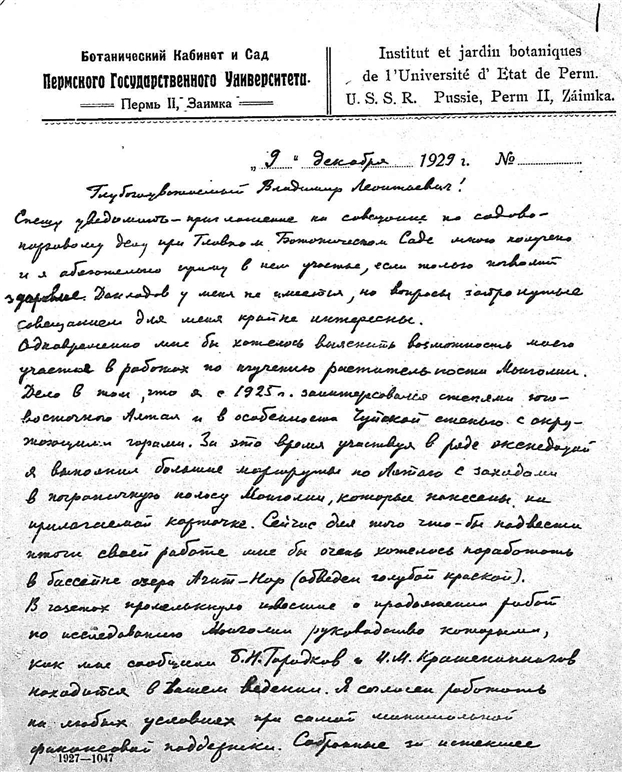 1
Ботанический Кабинет и Сад
Пермского Государственного Университета.
Пермь II, Заимка
Institut et jardin botaniques
de l'Université d' Etat de Perm.
U. S. S. R. Pussie, Perm II, Záimka.
„9" декабря 1929 г. №
Глубокоуважаемый Владимир Леонтьевич!
Спешу уведомить – приглашение на совещание по садово-
парковому делу при Главном Ботаническом Саде мною получено
и я обязательно приму в нем участье, если только позволит
здоровье. Докладов у меня не имеется, но вопросы затронутые
совещанием для меня крайне интересны.
Одновременно мне бы хотелось выяснить возможность моего
участия в работах по изучению растительности Монголии.
Дело в том, что я с 1925 г. заинтересовался степями юго-
восточного Алтая и в особенности Чуйской степью с окру-
жающими горами. За это время участвуя в ряде экспедиций
я выполнил большие маршруты по Алтаю с заходами
в пограничную полосу Монголии, которые нанесены на
прилагаемой карточке. Сейчас для того что-бы подвести
итоги своей работе мне бы очень хотелось поработать
в бассейне озера Ачит-Нор (обведен голубой краской).
В газетах промелькнуло известие о продолжении работ
по исследованию Монголии руководство которыми,
как мне сообщили Б.Н. Городков и И.М. Крашенинников
находится в Вашем ведении. Я согласен работать
на любых условиях при самой минимальной
финансовой поддержки. Собранные за истекшее
1927—1047